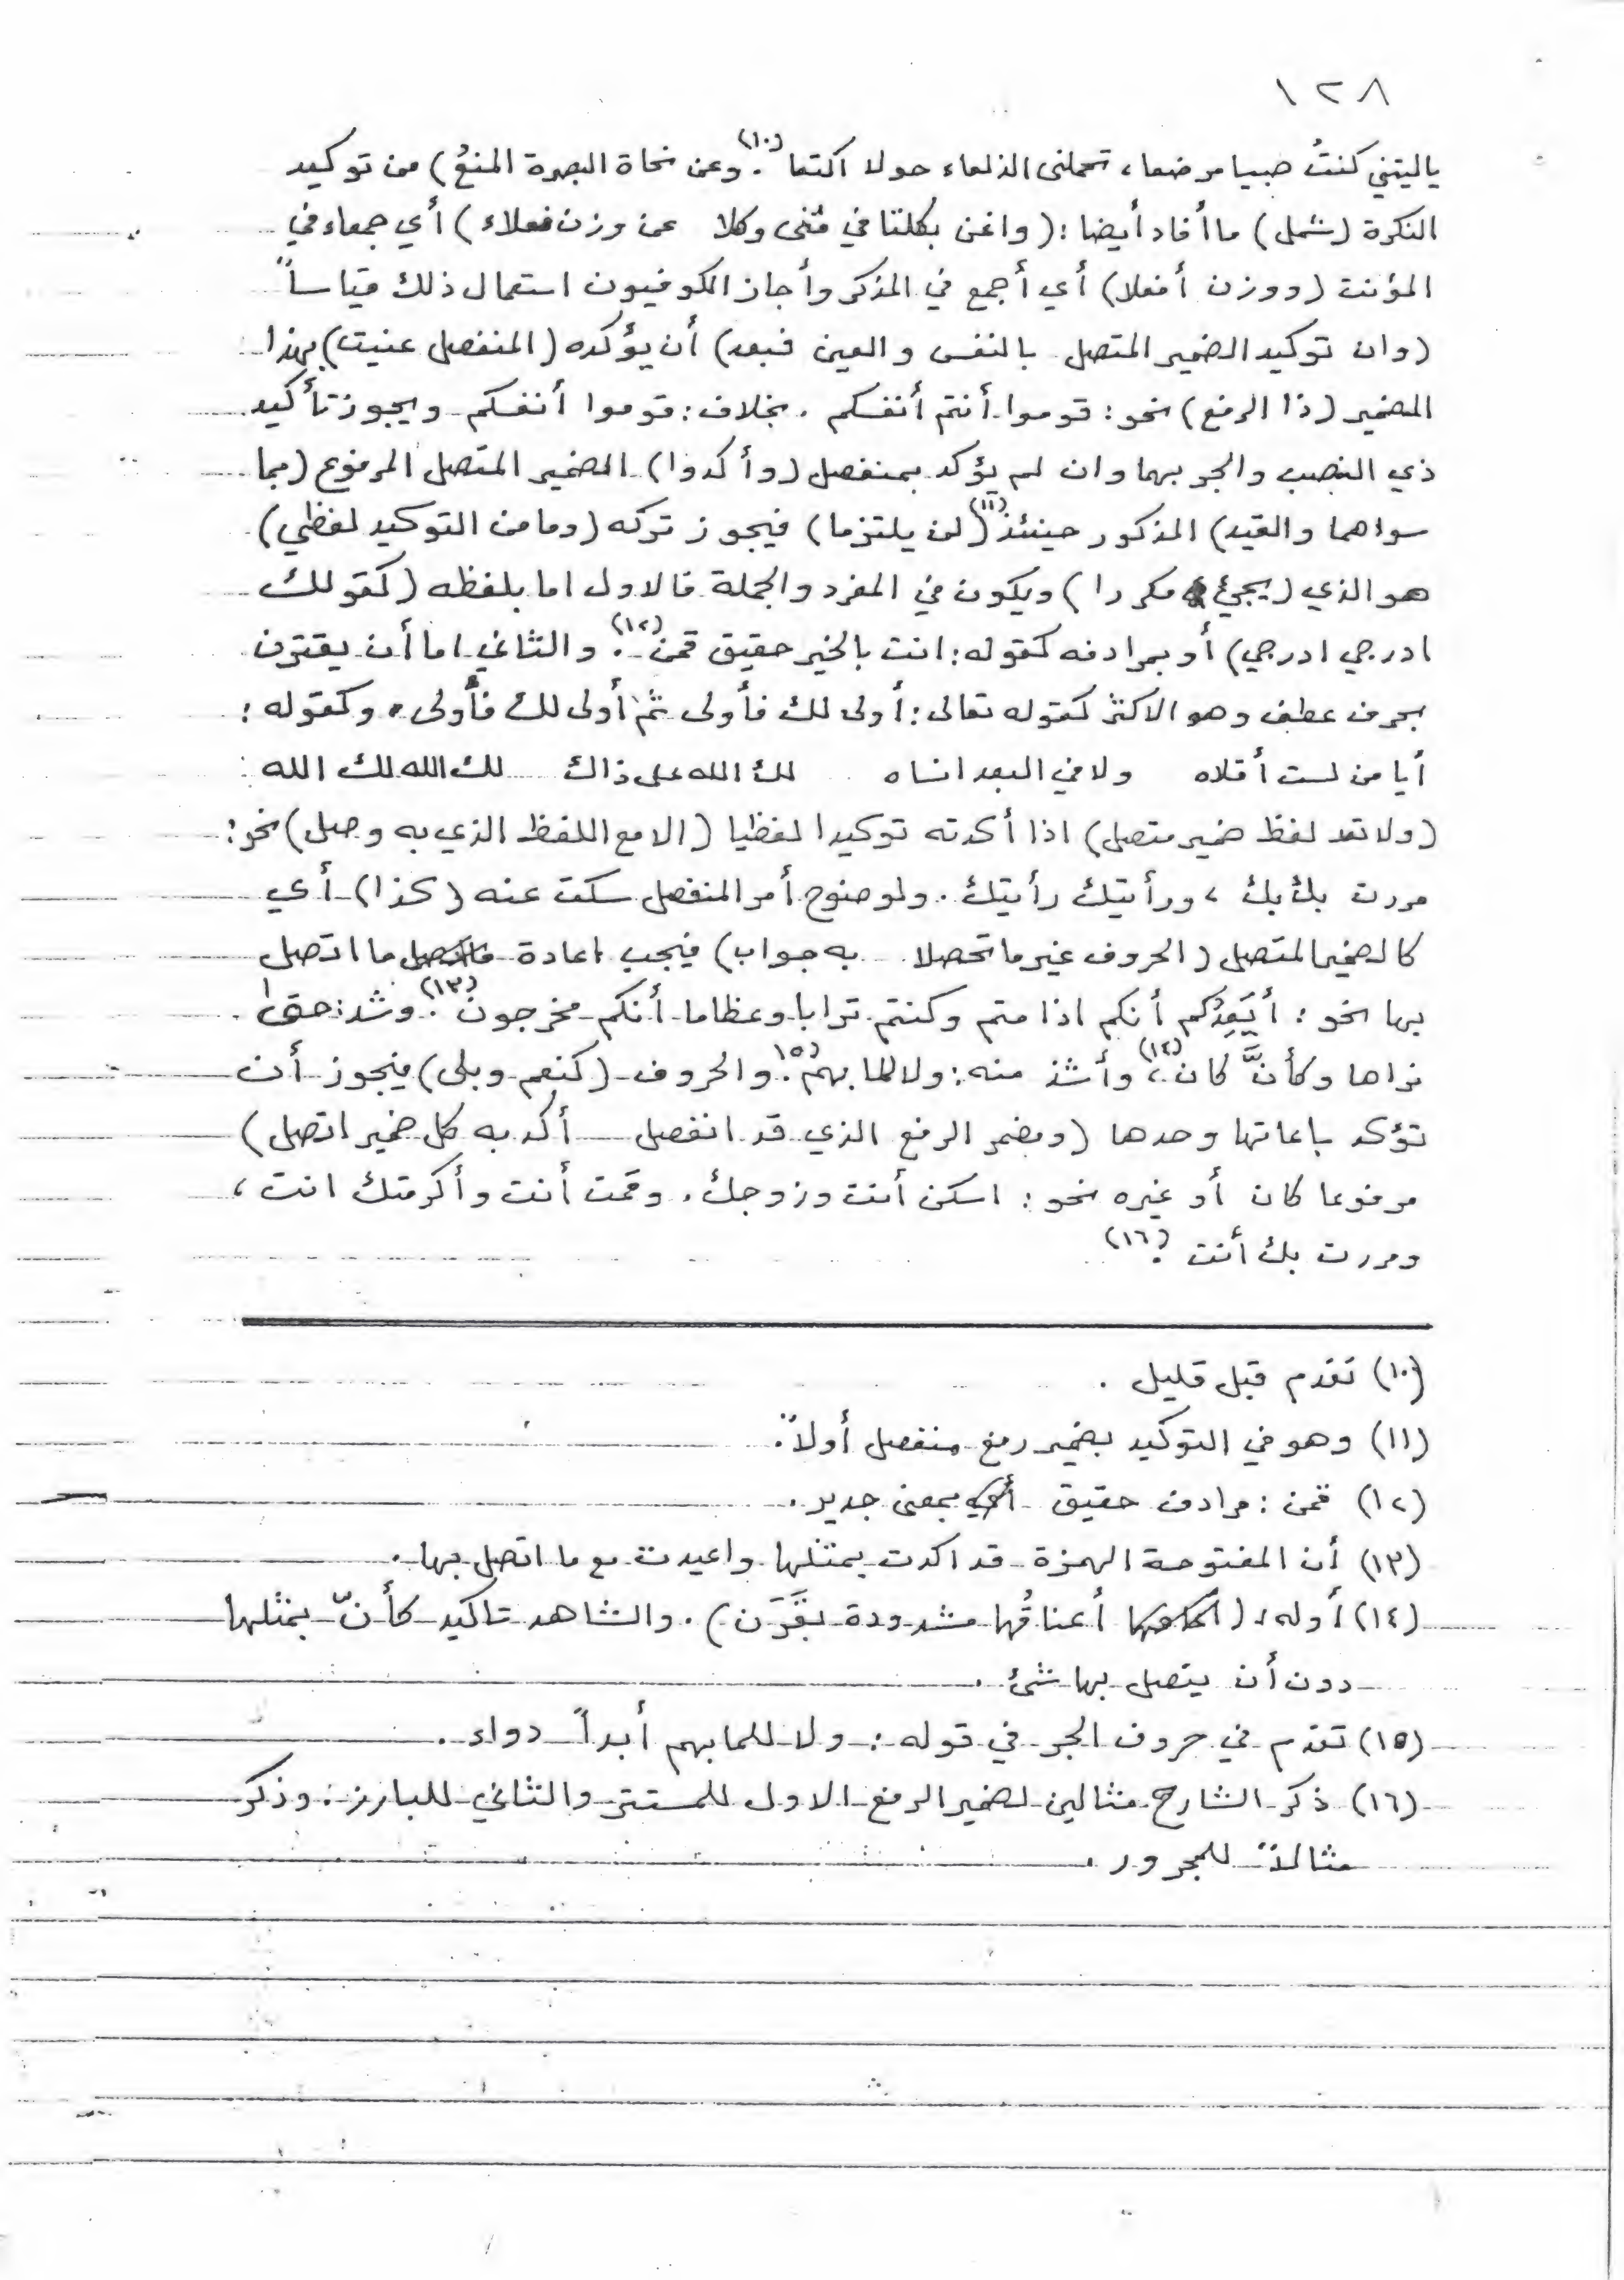 ١٢٨
ياليتني كنتُ صبيا مرضعا، تحملني الذلفاء حولا اكتعا (١٠). وعن نحاة البصرة المنعُ) من توكيد
النكرة (شمل) ما أفاد أيضا: (واغن بكلتا في مُثنى وكلا عن وزن فعلاء) أي جمعاء في
المؤنث (ووزن أفعلا) أي أجمع في المذكر وأجاز الكوفيون استعمال ذلك قياساً
(وان توكيد الضمير المتصل بالنفس والعين فبعد) أن يؤكده (المنفصل عنيت) بهذا
الضمير (ذا الرفع) نحو: قوموا أنتم أنفسكم. بخلاف: قوموا أنفسكم ويجوز تأكيد
ذي النصب والجر بهما وان لم يؤكد بمنفصل (وأكدوا) الضمير المتصل المرفوع (بما
سواهما والقيد) المذكور حينئذ (١١) (لن يلتزما) فيجوز تركه (وما من التوكيد لفظي)
هو الذي (يجئ مكررا) ويكون في المفرد والجملة فالاول اما بلفظه (كقولك
ادرجي ادرجي) أو بمرادفه كقوله: انت بالخير حقيق قمن (١٢). والثاني اما أن يقترن
بحرف عطف وهو الاكثر كقوله تعالى: أولى لك فأولى ثم أولى لك فأولى. وكقوله:
أيا من لست أقلاه ولا في البعد انساه لك الله على ذاك لك الله لك الله
(ولا تعد لفظ ضمير متصل) اذا أكدته توكيدا لفظيا (الا مع اللفظ الذي به وصل) نحو:
مررت بك بك، ورأيتك رأيتك. ولوضوح أمر المنفصل سكت عنه (كذا) أي
كالضمير المتصل (الحروف غير ما تحصلا به جواب) فيجب اعادة ما اتصل
بها نحو: أيَعِدُكم أنكم اذا متم وكنتم ترابا وعظاما أنكم مخرجون (١٣). وشذ: حتى
نراها وكأنَّ كان (١٤)، وأشذ منه: ولا للما بهم (١٥). والحروف (كنعم وبلى) فيجوز أن
تؤكد باعاتها وحدها (ومضمر الرفع الذي قد انفصل أكد به كل ضمير اتصل)
مرفوعا كان أو غيره نحو: اسكن أنت وزوجك. وقمت أنت وأكرمتك انت،
ومررت بك أنت (١٦).
(١٠) تقدم قبل قليل.
(١١) وهو في التوكيد بضمير رفع منفصل أولاً.
(١٢) قمن: مرادف حقيق بمعنى جدير.
(١٣) أن المفتوحة الهمزة قد اكدت بمثلها واعيدت مع ما اتصل بها.
(١٤) أوله: ( أعناقُها مشدودة بقَرَن). والشاهد تاكيد كأنّ بمثلها
دون أن يتصل بها شئ.
(١٥) تقدم في حروف الجر في قوله: ولا للما بهم أبداً دواء.
(١٦) ذكر الشارح مثالين لضمير الرفع الاول للمستتر والثاني للبارز: وذكر
مثالاً للمجرور.